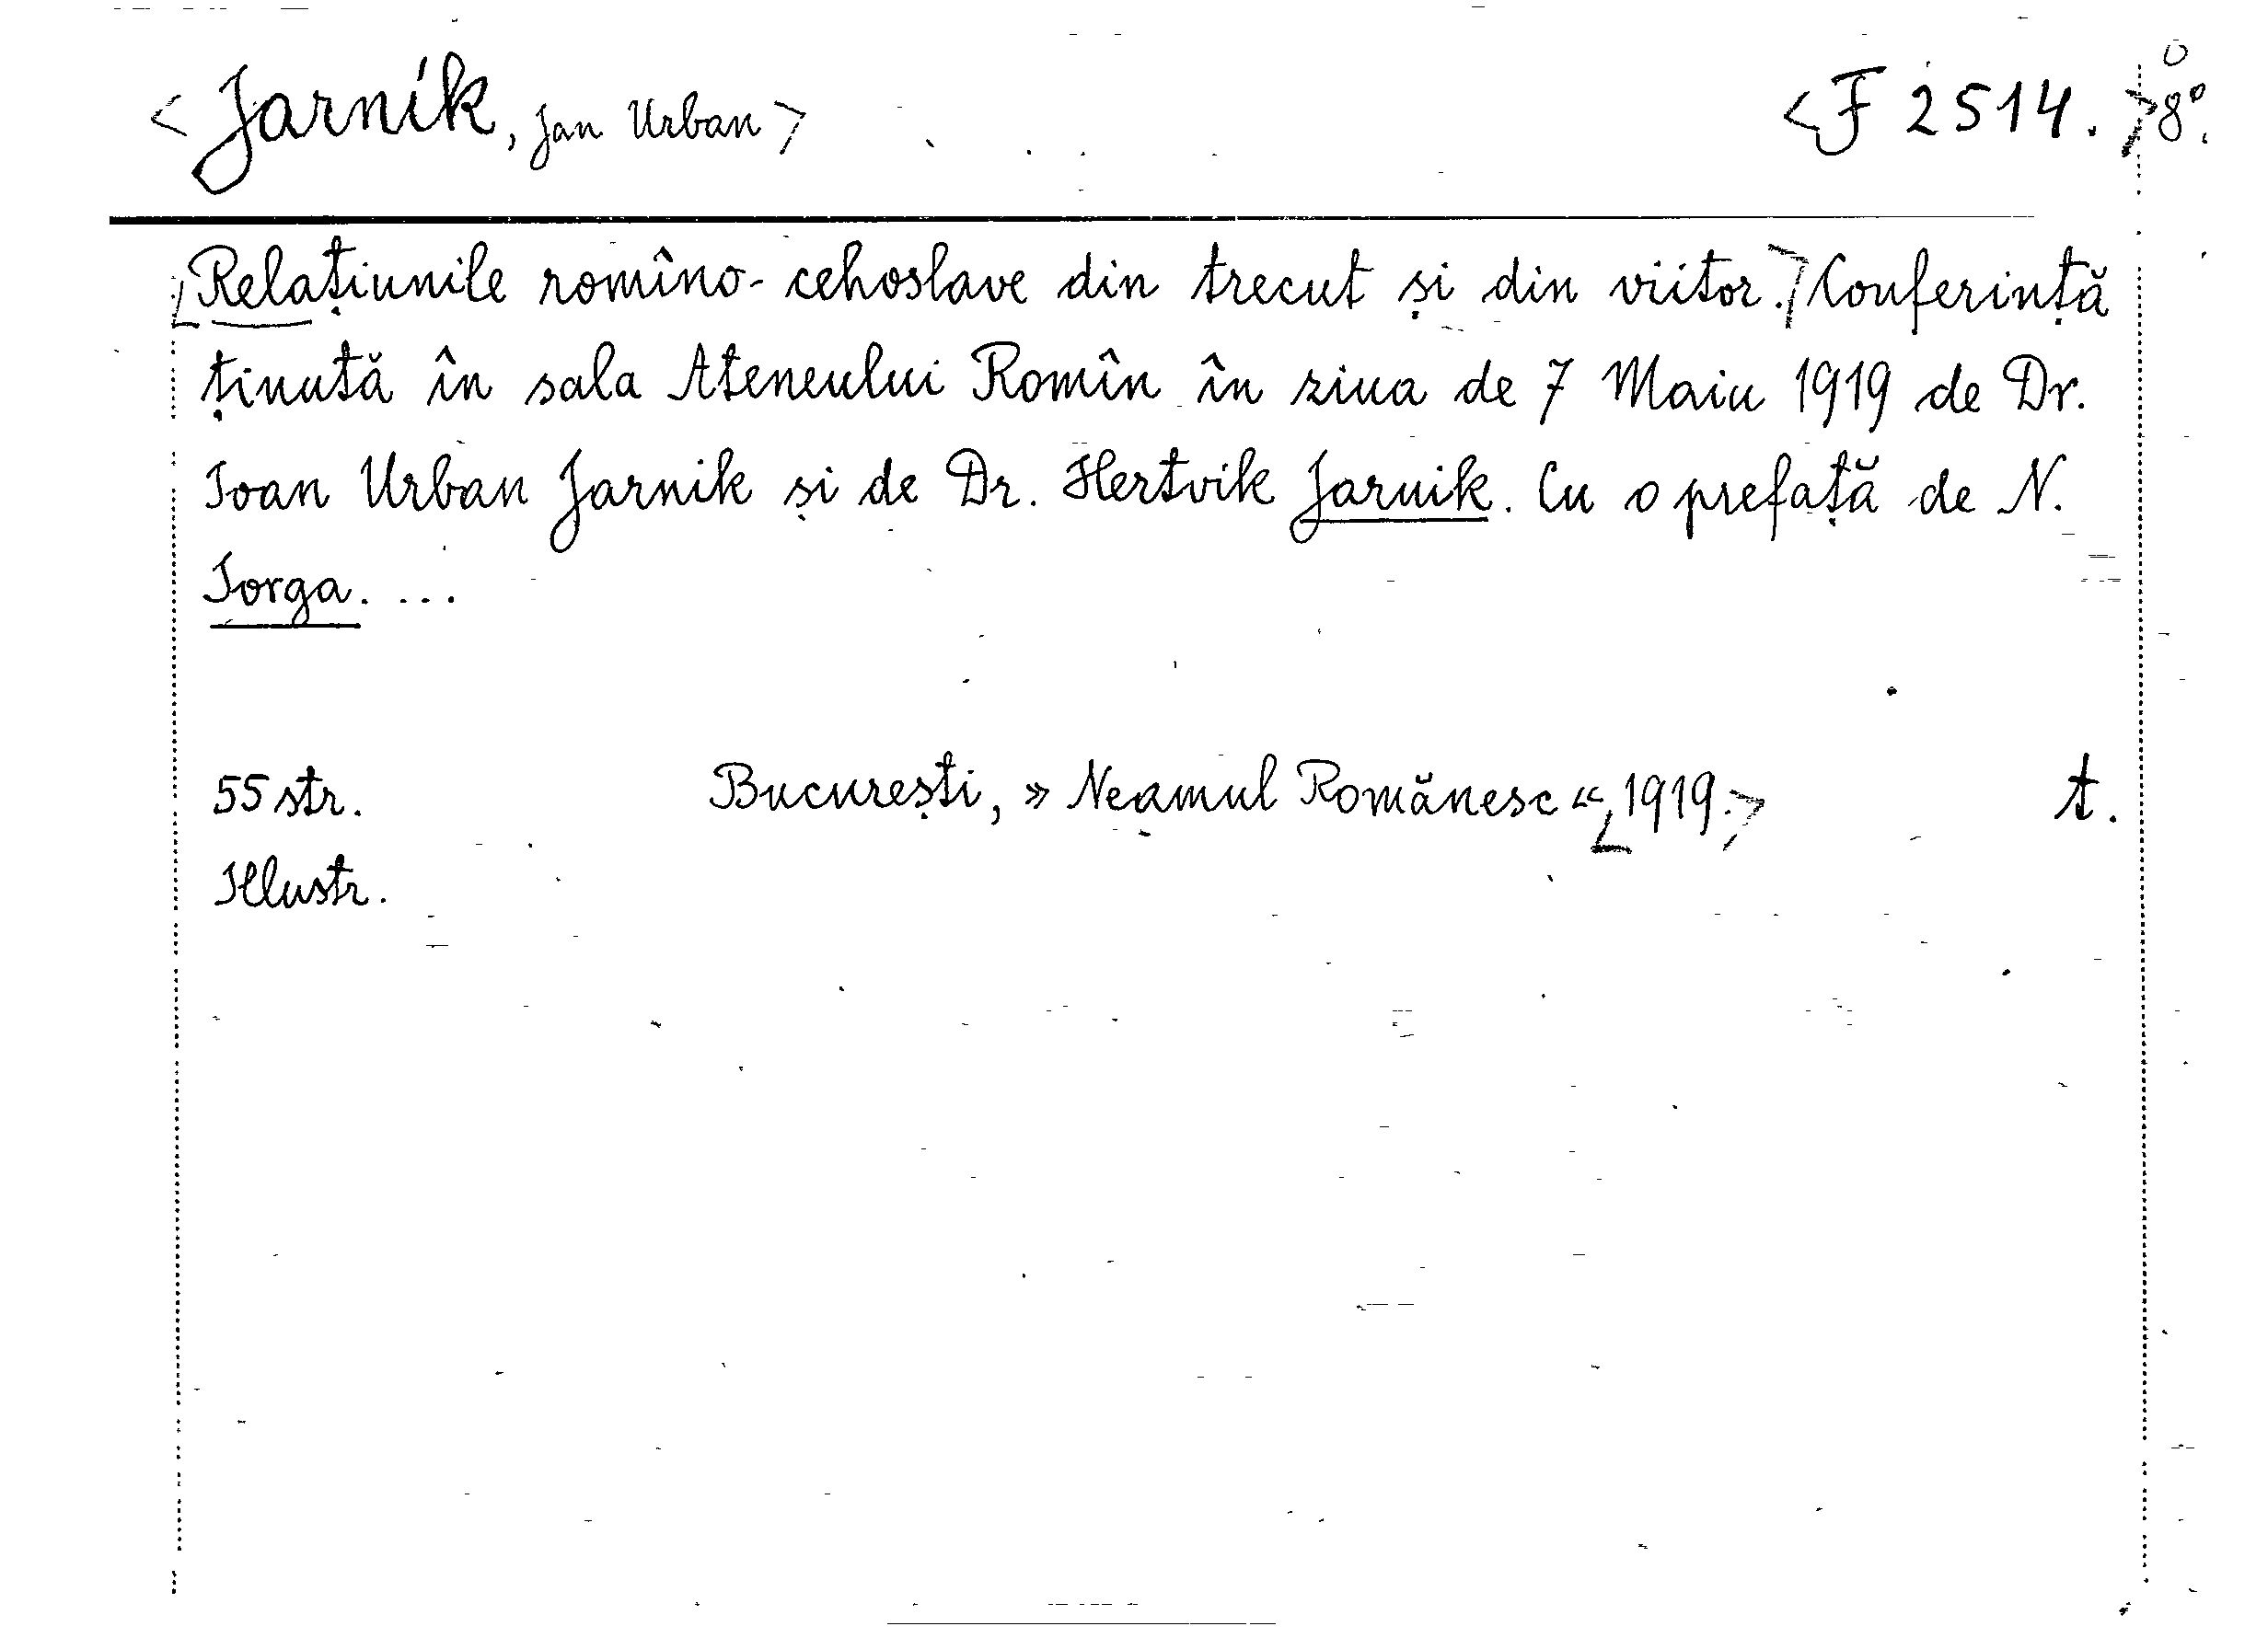 <Jarník, Jan Urban> <F 2514.>8°.
<Relațiunile romîno-cehoslave din trecut și din viitor.> Conferință
ținută în sala Ateneului Romîn în ziua de 7 Maiu 1919 de Dr.
Ioan Urban Jarnik și de Dr. Hertvik Jarnik. Cu o prefață de N.
Iorga. ...
55 str. București, »Neamul Romănesc« <1919.> t.
Illustr.